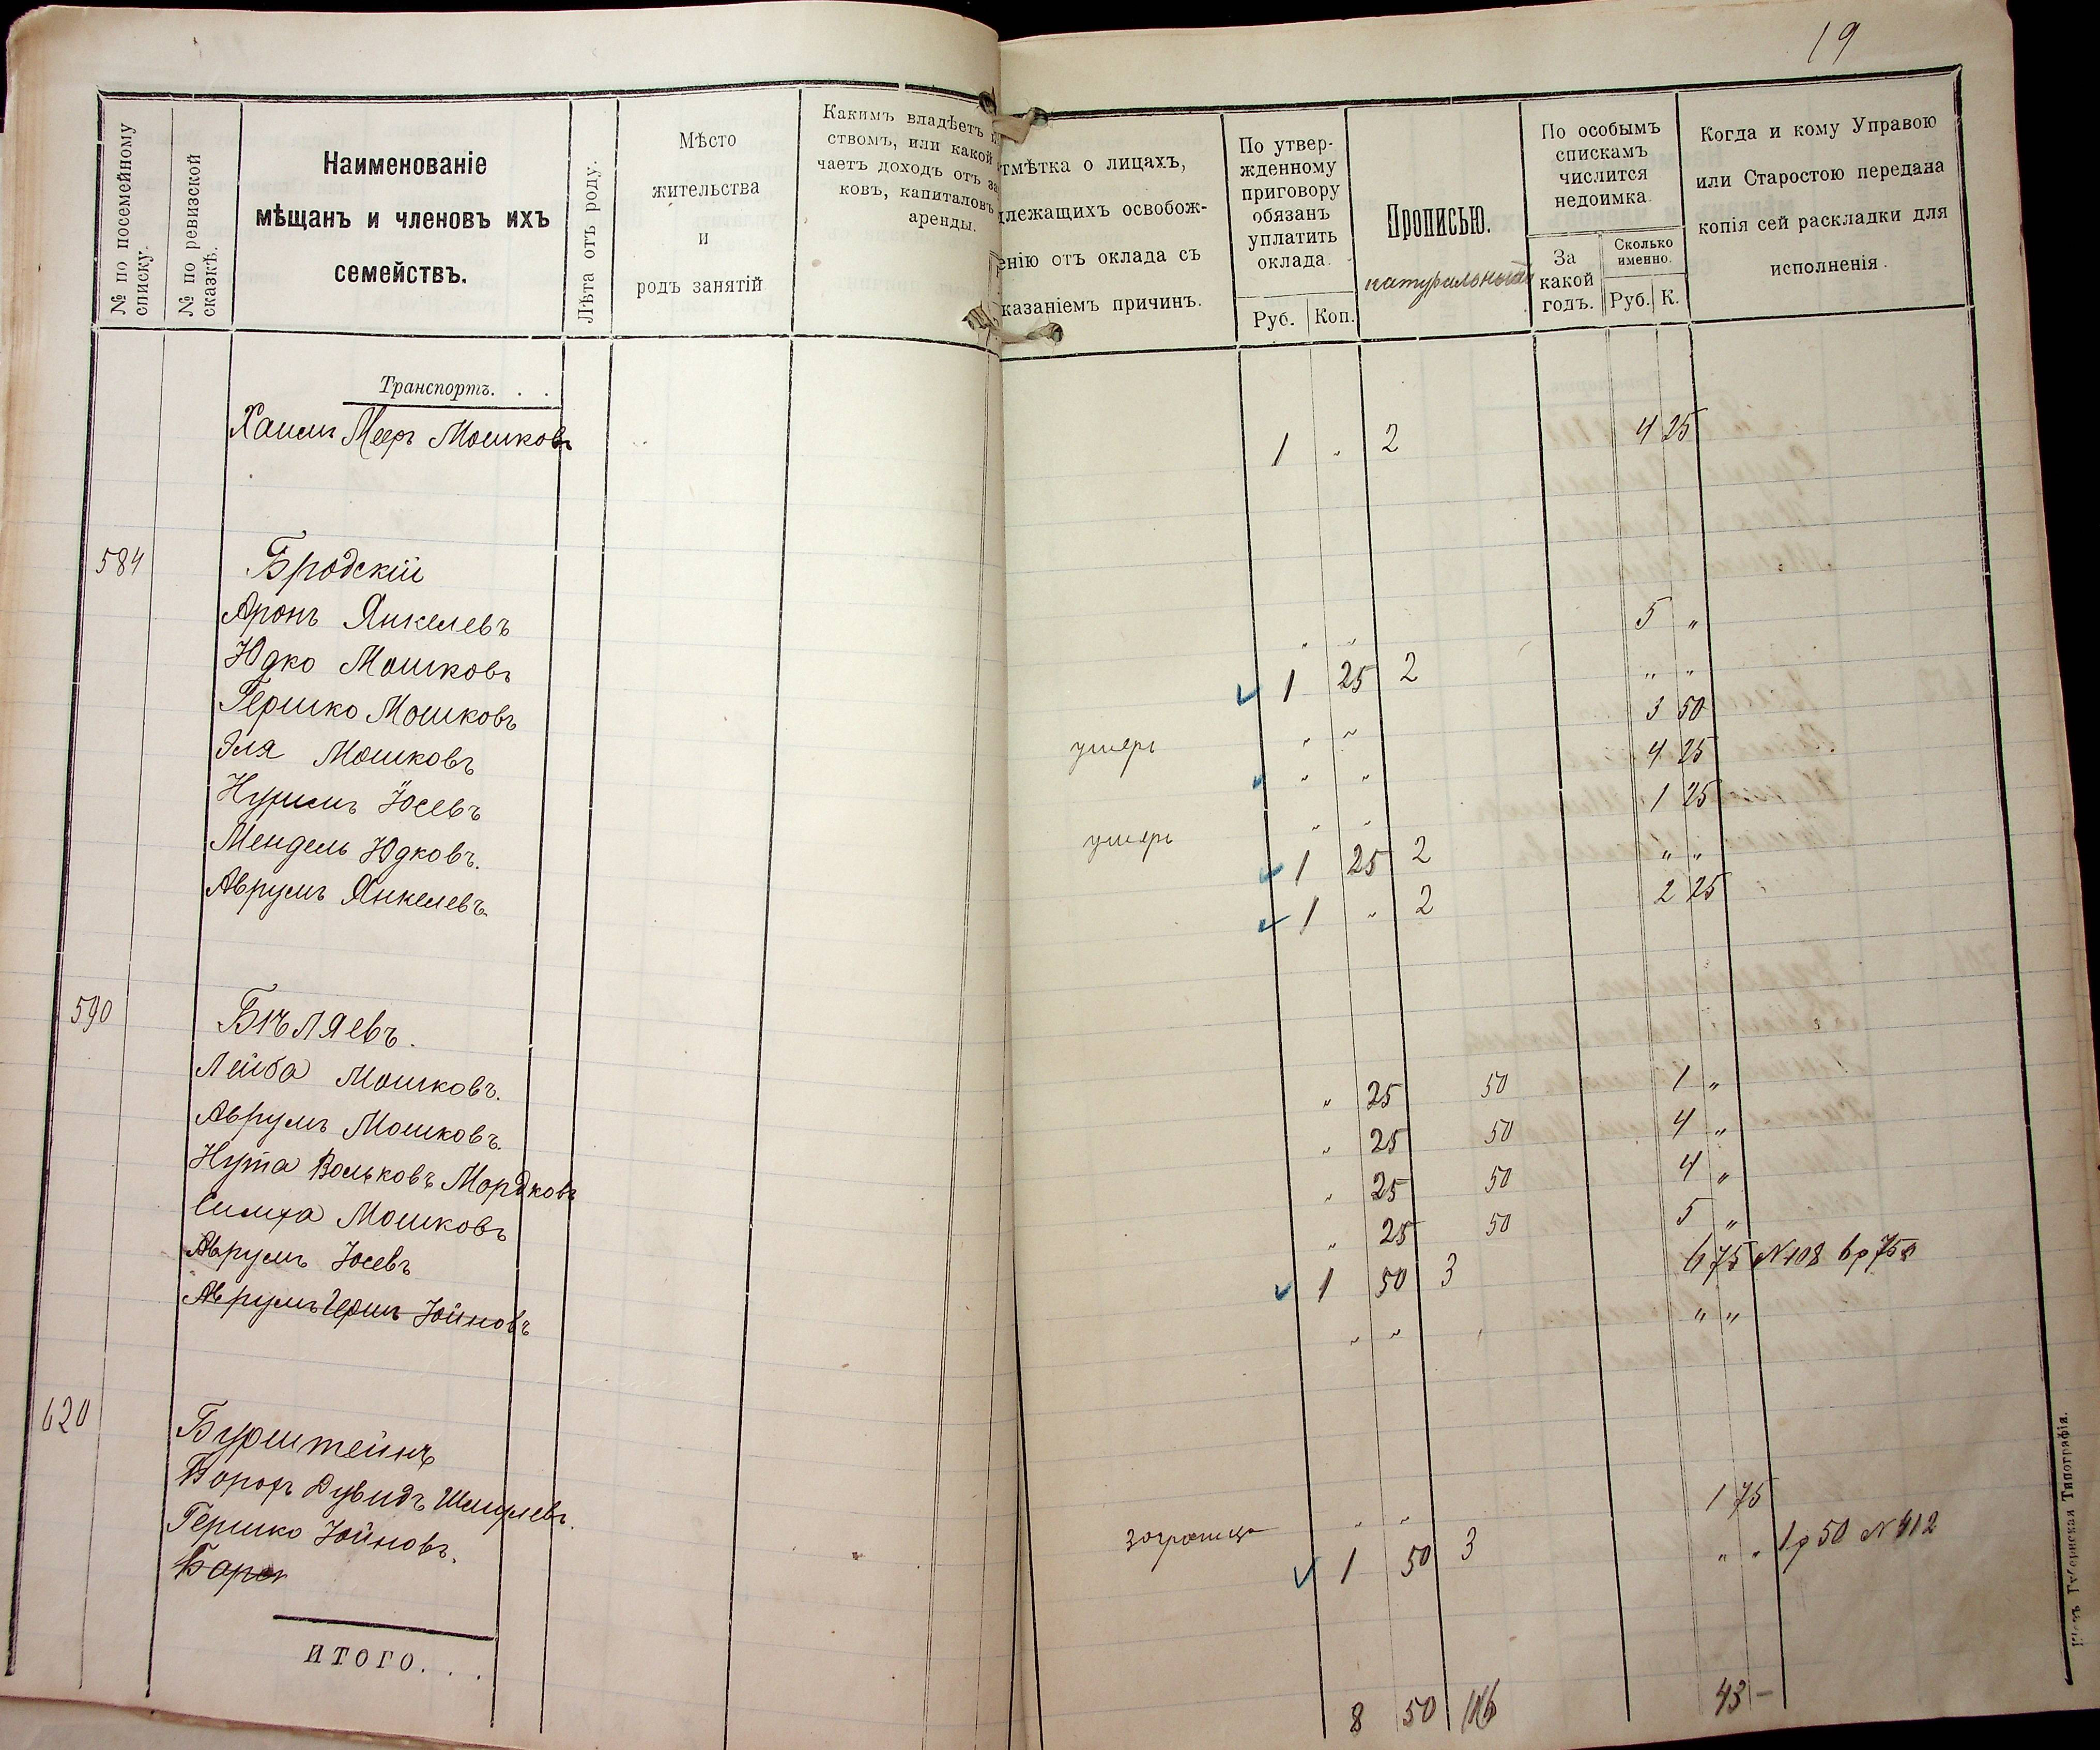 19
№ по посемейному списку.
№ по ревизской сказкѣ.
Наименованіе
мѣщанъ и членовъ ихъ
семействъ.
Лѣта отъ роду.
Мѣсто
жительства
и
родъ занятій
Какимъ владѣетъ
ствомъ, или какой
чаетъ доходъ отъ за
ковъ, капиталовъ
аренды.
тмѣтка о лицахъ,
длежащихъ освобож-
енію отъ оклада съ
казаніемъ причинъ.
По утвер-
жденному
приговору
обязанъ
уплатить
оклада.
Руб. Коп.
Прописью.
натуральный
По особымъ
спискамъ
числится
недоимка.
За
какой
годъ.
Сколько
именно.
Руб. К.
Когда и кому Управою
или Старостою передана
копія сей раскладки для
исполненія.
Транспортъ. . .
Хаимъ Меер Мошковъ 1 „ 2 4 25
584 Бродскій
Аронъ Янкелевъ „ „ 5 „
Юдко Мошковъ 1 25 2 „ „
Гершко Мошковъ умеръ „ „ 3 50
Эля Мошковъ „ „ 4 25
Нухимъ Юсевъ умеръ „ „ 1 25
Мендель Юдковъ. 1 25 2 „ „
Аврумъ Янкелевъ 1 „ 2 2 25
590 Бѣляевъ.
Лейба Мошковъ. „ 25 50 1 „
Аврумъ Мошковъ. „ 25 50 4 „
Нута Вольковъ Мордковъ „ 25 50 4 „
Симха Мошковъ „ 25 50 5 „
Аврумъ Юсевъ 1 50 3 6 75 № 108 6 р 75 к
Аврумъ Герш Юйновъ „ „ „ „
620 Бурштейнъ
Борох Дувидъ Шмулевъ. заграница „ „ 1 75
Гершко Юйновъ. 1 50 3 „ „ 1 р 50 № 412
Барох
ИТОГО. . .
8 50 16 43 –
Губернская Типографія.